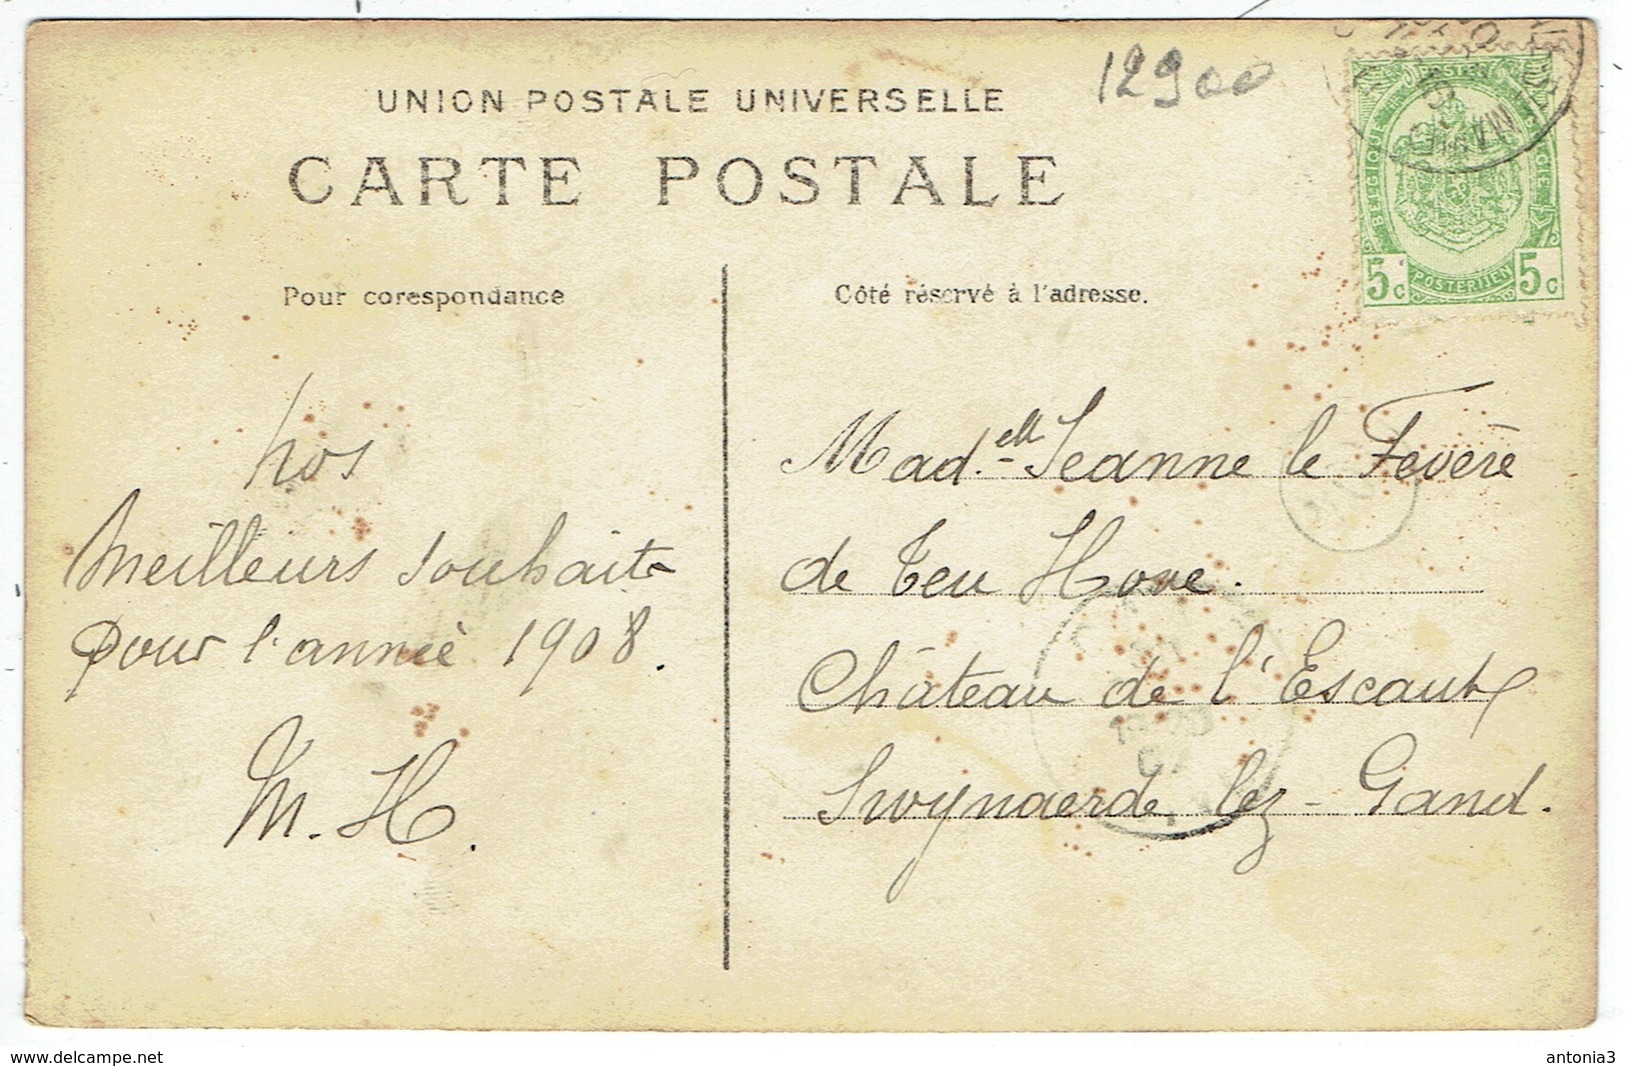 12900
UNION POSTALE UNIVERSELLE
CARTE POSTALE
POSTES
BELGIQUE
POSTERIJEN
5 c 5 c
Pour corespondance
Côté réservé à l'adresse.
nos
meilleurs souhaits
pour l'année 1908.
M. H.
Mad.elle Jeanne le Fevère
de Ten Hove.
Château de l'Escaut
Swynaerde lez-Gand.
delcampe.net
antonia3